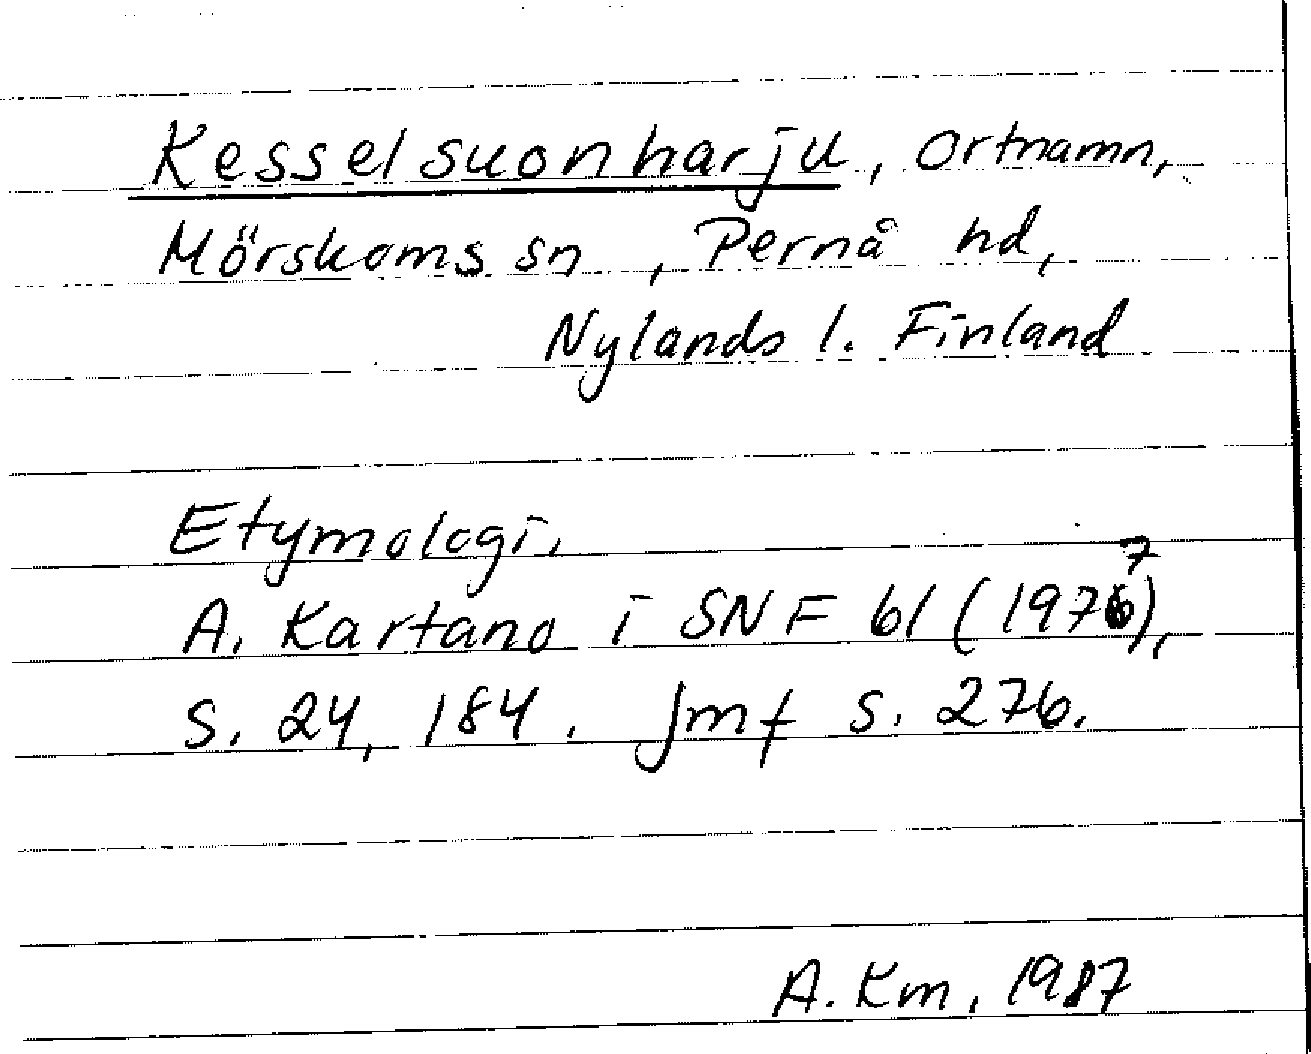 Kesselsuonharju, Ortnamn,
Mörskoms sn, Pernå hd,
Nylands l. Finland
Etymologi.
A. Kartano i SNF 61 (1977),
s. 24, 184. Jmf s. 276.
A. Km, 1987